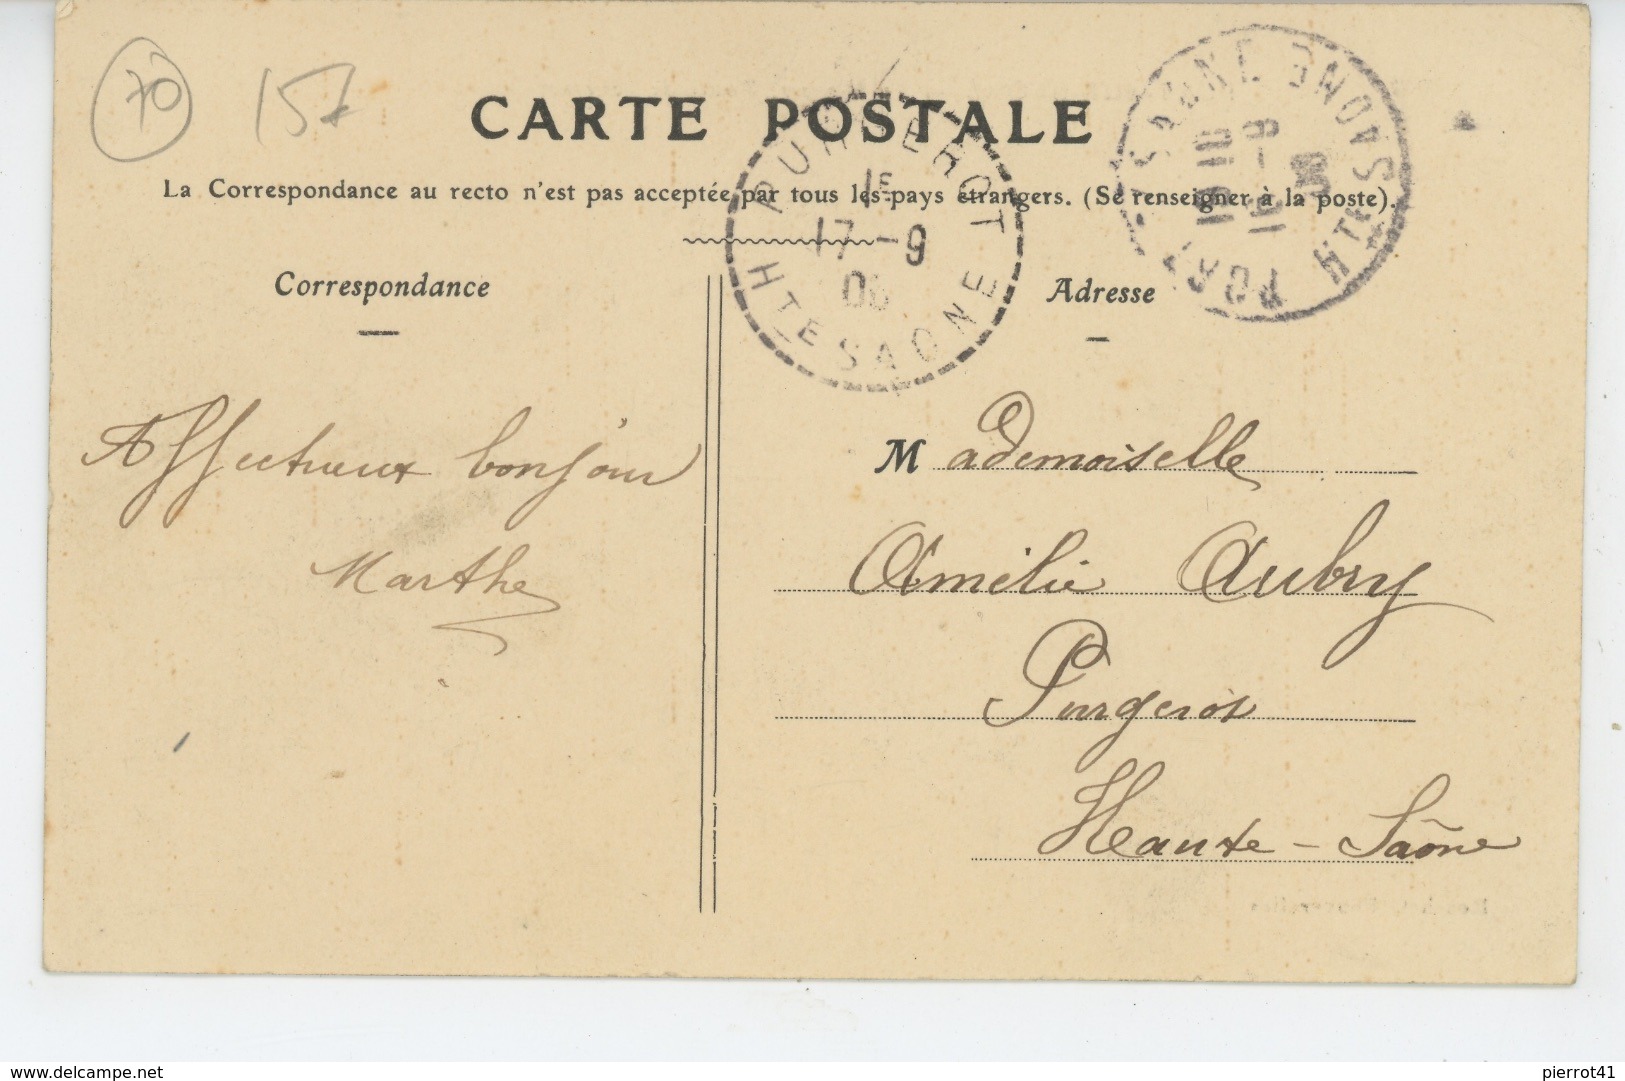 70
157
CARTE POSTALE
La Correspondance au recto n'est pas acceptée par tous les pays étrangers. (Se renseigner à la poste).
17 - 9
HTE SAONE
PORT
SAONE
HTE SAONE
Correspondance
Adresse
Affectueux bonjour
Marthe
Mademoiselle
Amélie Aubry
Purgerot
Haute-Saône
delcampe.net
pierrot41